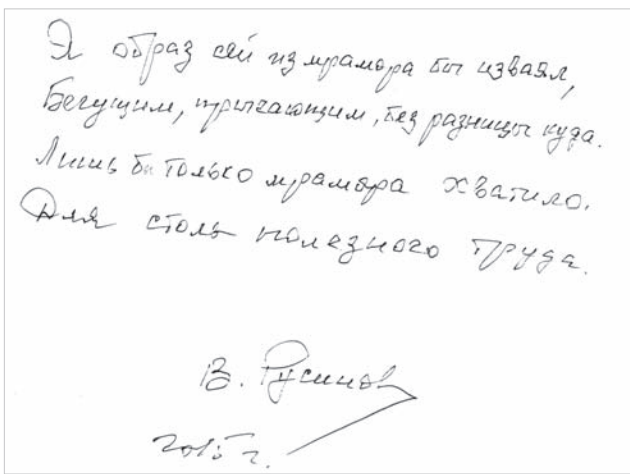 Я образ сей из мрамора бы изваял,
Бегущим, прыгающим, без разницы куда.
Лишь бы только мрамора хватило.
Для столь полезного труда.
В. Русинов
2015 г.